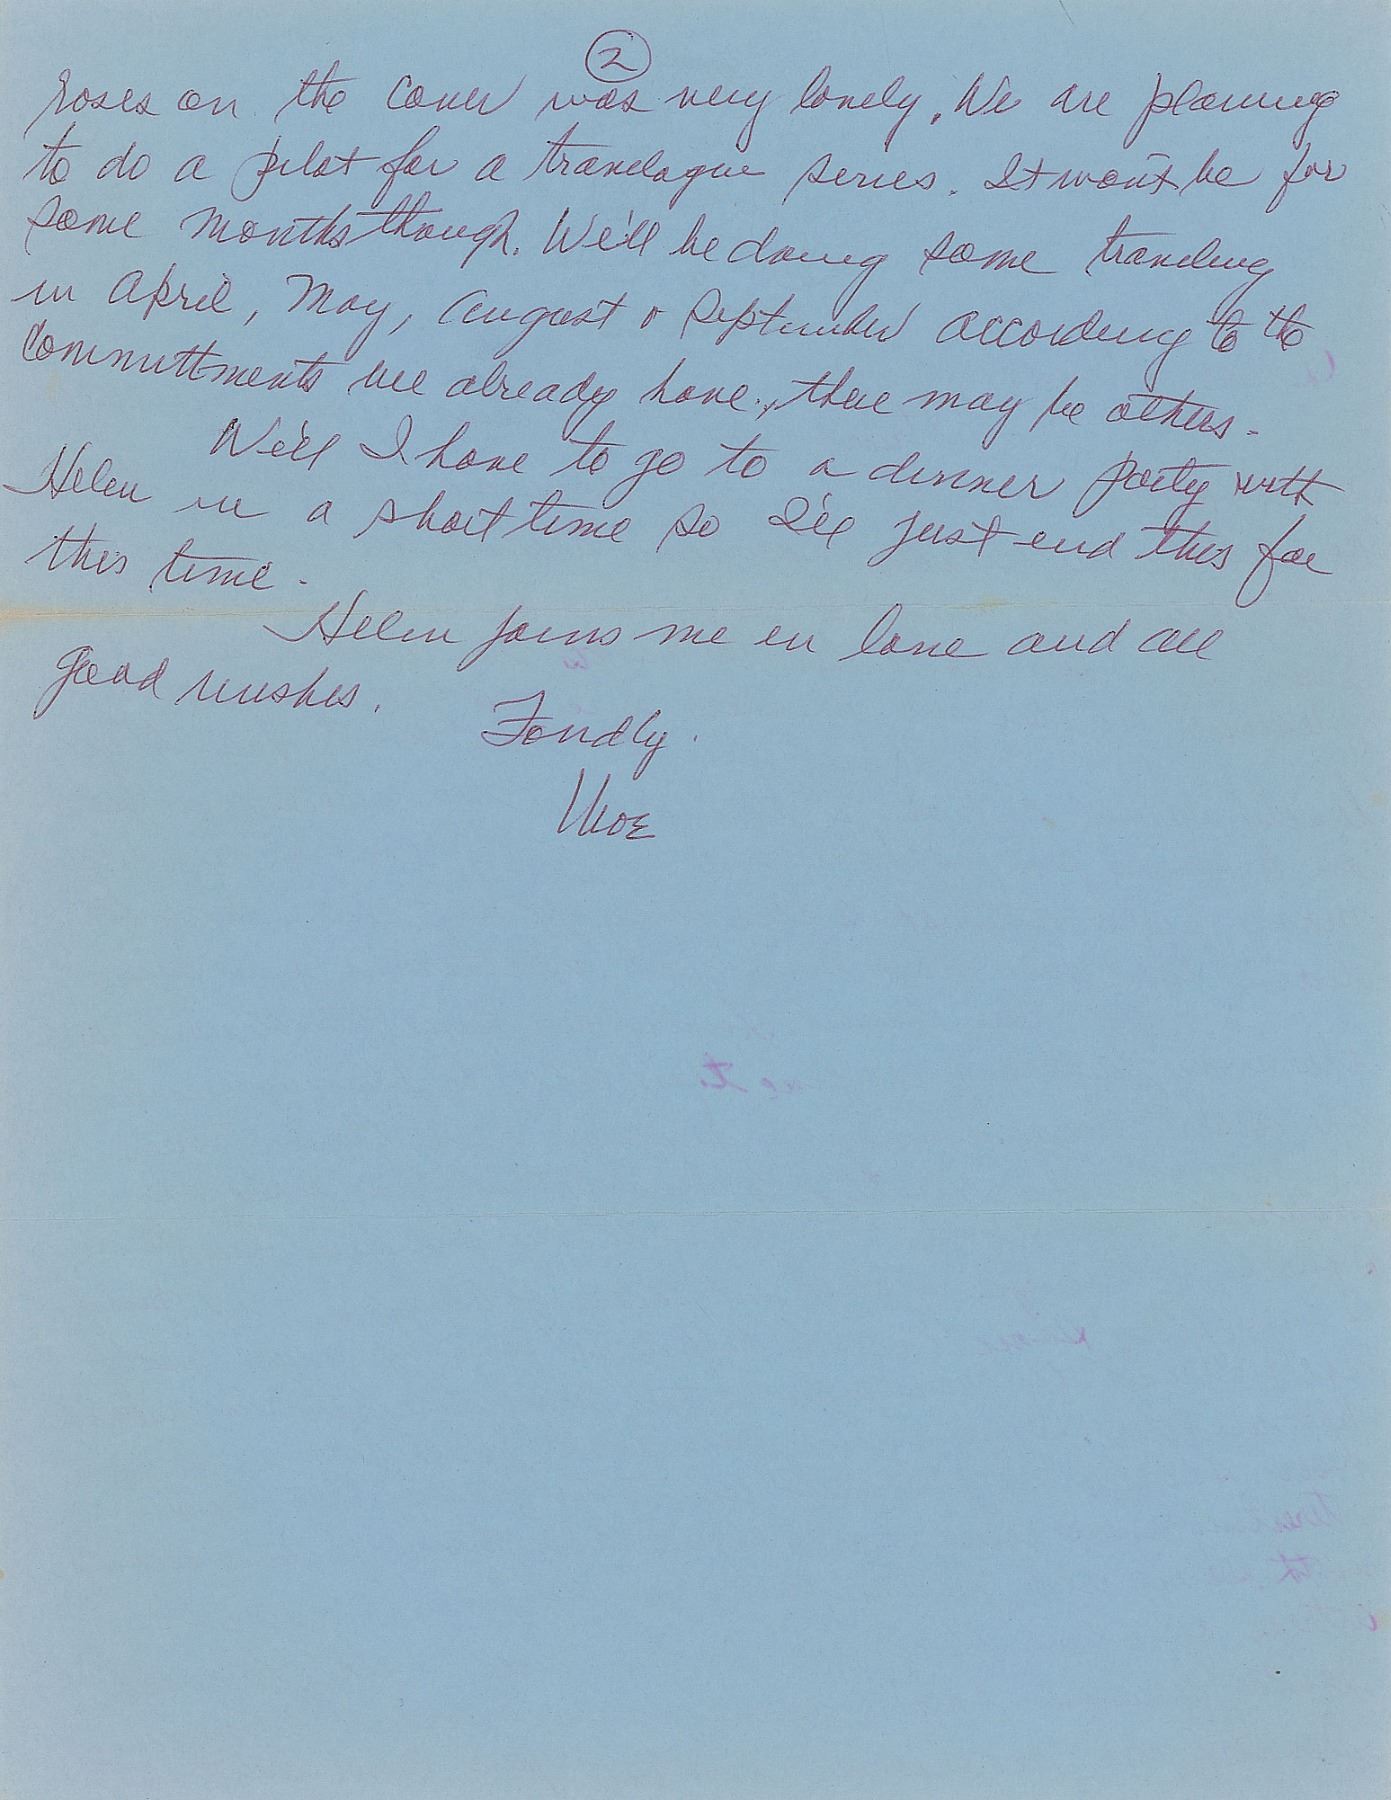 2
roses on the cover was very lovely. We are planning
to do a pilot for a travelogue series. It won't be for
some months though. We'll be doing some traveling
in April, May, August & September according to the
committments we already have., there may be others.
Well I have to go to a dinner party with
Helen in a short time so I'll just end this for
this time.
Helen joins me in love and all
good wishes.
Fondly.
Moe